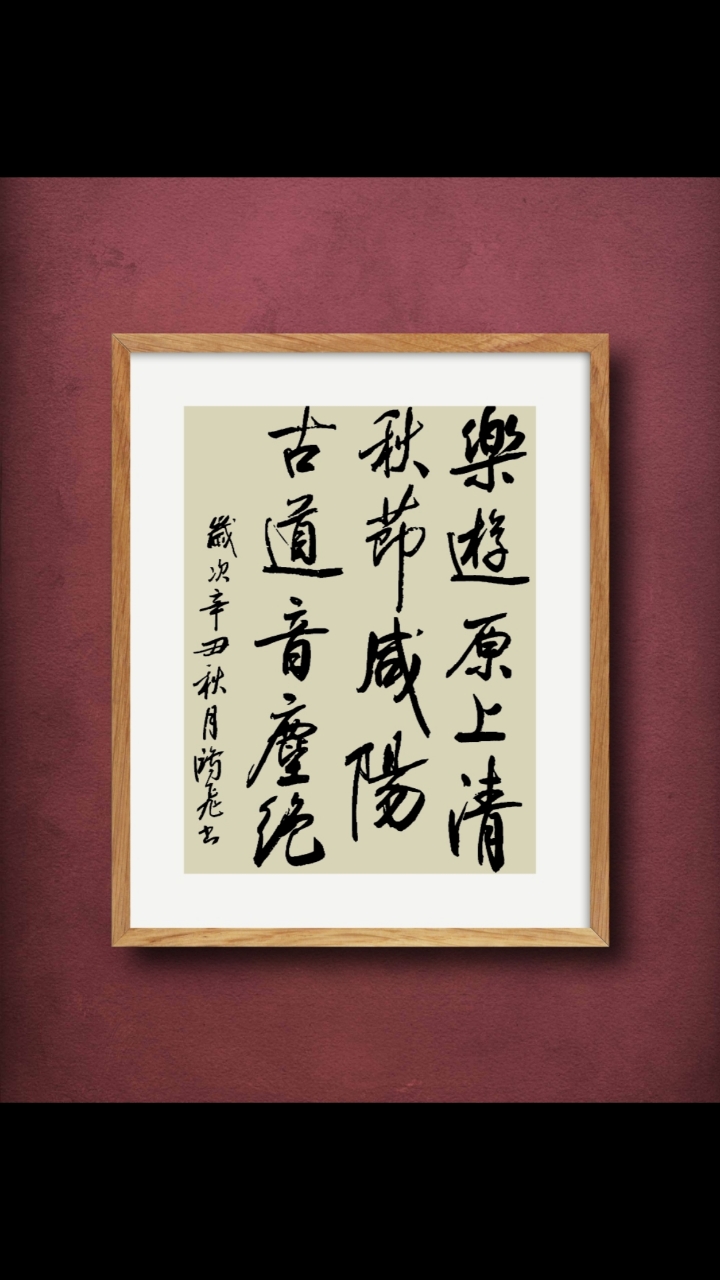 樂遊原上清
秋節咸陽
古道音塵絶
歲次辛丑秋月鴻飛書